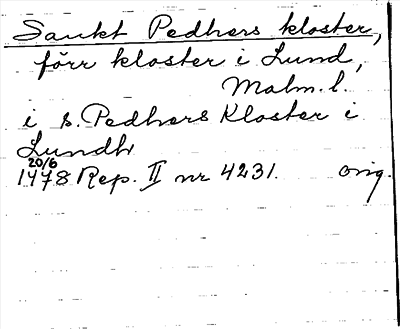 Sankt Pedhers kloster,
förr kloster i Lund,
Malm. l.
i s. Pedhers Kloster i
Lundh
20/6
1478 Rep. II nr 4231. orig.